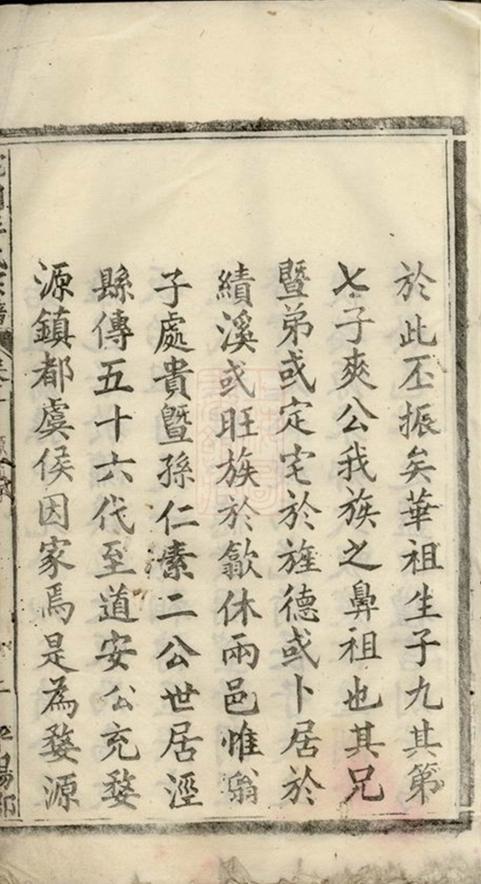 於此丕振矣華祖生子九其第
七子爽公我族之鼻祖也其兄
暨弟或定宅於旌德或卜居於
績溪或旺族於歙休兩邑惟翁
子處貴暨孫仁素二公世居涇
縣傳五十六代至道安公充婺
源鎮都虞侯因家焉是為婺源